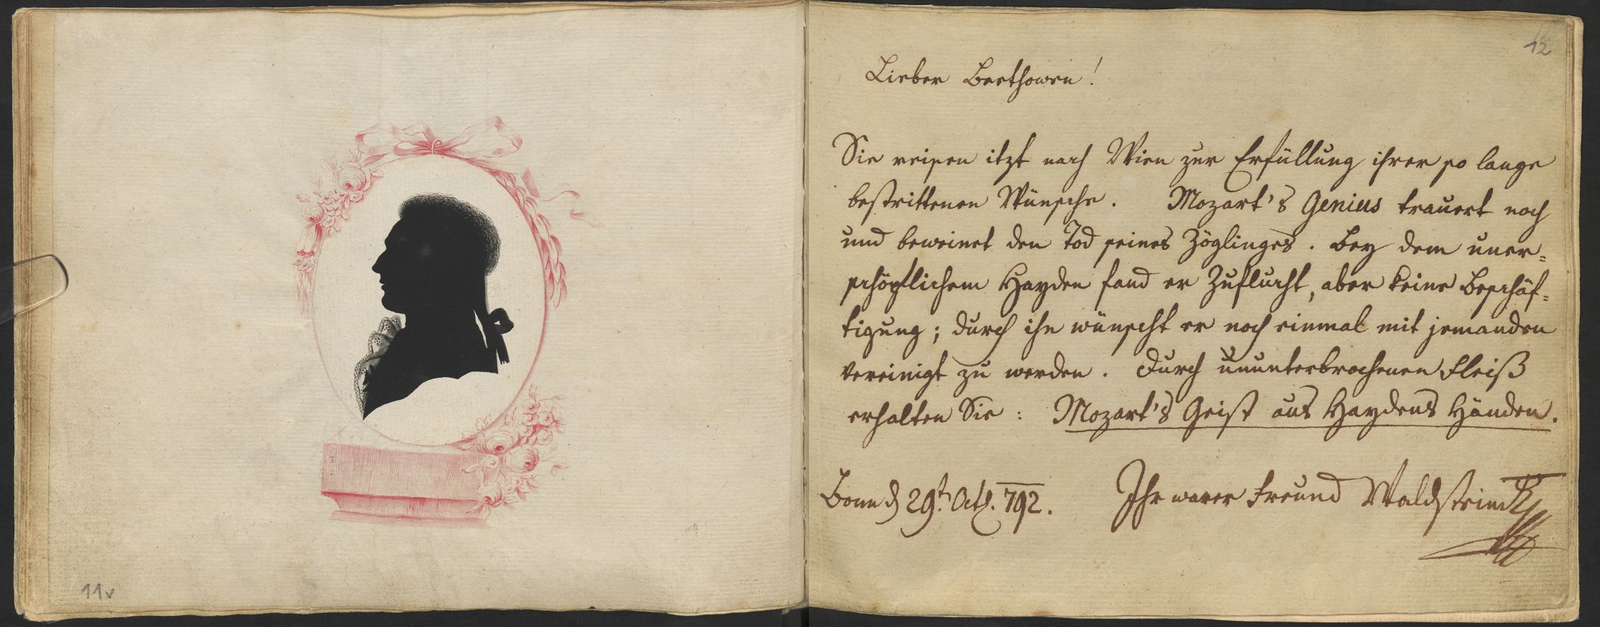 12
Lieber Beethowen!
Sie reisen itzt nach Wien zur Erfüllung ihrer so lange
bestrittenen Wünsche. Mozart's Genius trauert noch
und beweinet den Tod seines Zöglinges. Bey dem uner=
schöpflichem Hayden fand er Zuflucht, aber keine Beschäf=
tigung; durch ihn wünscht er noch einmal mit jemanden
vereinigt zu werden. Durch ununterbrochenen Fleiß
erhalten Sie: Mozart's Geist aus Haydens Händen.
Bonn d 29t. Oct. 792. Ihr warer Freund Waldstein
11v